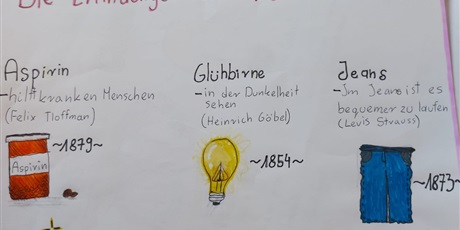 Die Erfindungen
Aspirin
-hilft kranken Menschen
(Felix Hoffman)
~1879~
Aspirin
Glühbirne
-in der Dunkelheit
sehen
(Heinrich Göbel)
~1854~
Jeans
-Im Jeans ist es
bequemer zu laufen
(Levis Strauss)
~1873~